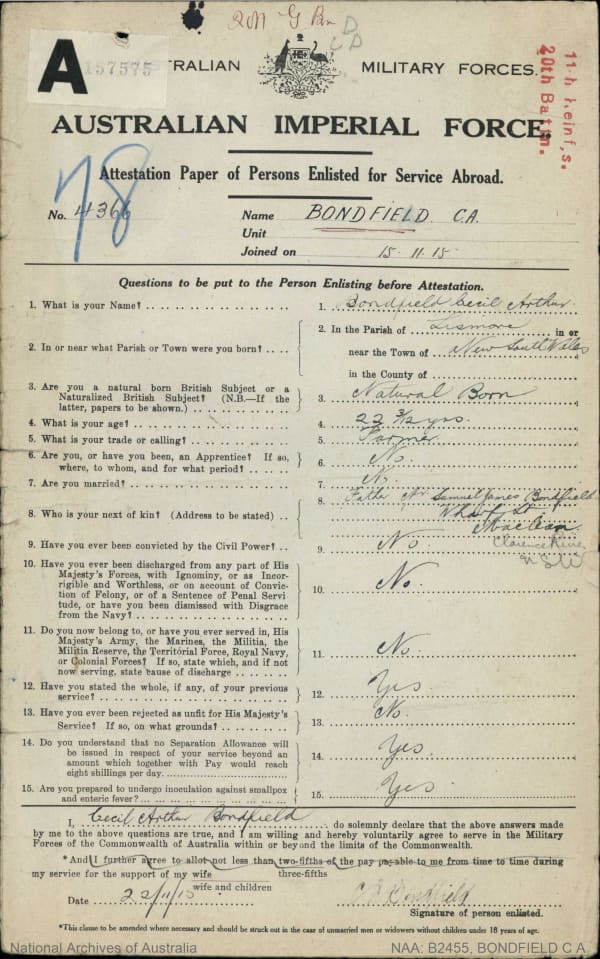 A 157575
AUSTRALIAN MILITARY FORCES.
11th Reinf,s.
20th Battn.
AUSTRALIAN IMPERIAL FORCE.
Attestation Paper of Persons Enlisted for Service Abroad.
78
No. 4366 Name BONDFIELD C.A.
Unit
Joined on 15.11.15
Questions to be put to the Person Enlisting before Attestation.
1. What is your Name? 1. Bondfield Cecil Arthur
2. In or near what Parish or Town were you born? 2. In the Parish of Lismore in or
near the Town of New South Wales
in the County of
3. Are you a natural born British Subject or a
Naturalized British Subject? (N.B.—If the
latter, papers to be shown.) 3. Natural Born
4. What is your age? 4. 22 3/12 yrs.
5. What is your trade or calling? 5. Farmer
6. Are you, or have you been, an Apprentice? If so,
where, to whom, and for what period? 6. No.
7. Are you married? 7. No.
8. Who is your next of kin? (Address to be stated) 8. Father Mr Samuel James Bondfield
Wharf St.
Maclean
Clarence River
NSW
9. Have you ever been convicted by the Civil Power? 9. No.
10. Have you ever been discharged from any part of His
Majesty's Forces, with Ignominy, or as Incor-
rigible and Worthless, or on account of Convic-
tion of Felony, or of a Sentence of Penal Servi
tude, or have you been Dismissed with Disgrace
from the Navy? 10. No.
11. Do you now belong to, or have you ever served in, His
Majesty's Army, the Marines, the Militia, the
Militia Reserve, the Territorial Force, Royal Navy,
or Colonial Forces? If so, state which, and if not
now serving, state cause of discharge 11. No.
12. Have you stated the whole, if any, of your previous
service? 12. Yes
13. Have you ever been rejected as unfit for His Majesty's
Service? If so, on what grounds? 13. No.
14. Do you understand that no Separation Allowance will
be issued in respect of your service beyond an
amount which together with Pay would reach
eight shillings per day. 14. Yes
15. Are you prepared to undergo inoculation against smallpox
and enteric fever? 15. Yes
I, Cecil Arthur Bondfield do solemnly declare that the above answers made
by me to the above questions are true, and I am willing and hereby voluntarily agree to serve in the Military
Forces of the Commonwealth of Australia within or beyond the limits of the Commonwealth.
*And I further agree to allot not less than two-fifths of the pay payable to me from time to time during
three-fifths
my service for the support of my wife
wife and children
Date 22/11/15 C A Bondfield
Signature of person enlisted.
*This clause to be amended where necessary and should be struck out in the case of unmarried men or widowers without children under 18 years of age.
National Archives of Australia NAA: B2455, BONDFIELD C A